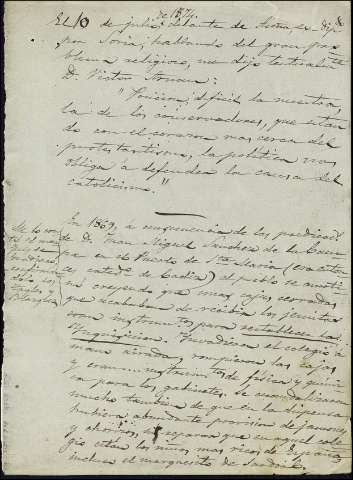 de 1874.
El 10 de julio, delante de Sierra, ex-dip.do
por Soria, hablando del gran pro-
blema religioso, me dijo textualmente
D. Victor Arnau:
"Posicion difícil la nuestra,
la de los conservadores, que estan-
do con el corazon mas cerca del
protestantismo, la política nos
obliga á defender la causa del
catolicismo."
En 1869, á consecuencia de los
de D. Juan Miguel Sanchez de la Cam-
pa en el Puerto de Sta. María (era
cated.co de Cadiz) el pueblo se amoti-
nó creyendo que unas cajas cerradas
que acababan de recibir los jesuitas
eran instrumentos para restablecer la
Inquisicion. Invadieron el colegio á
mano airada, rompieron las cajas
y eran.... instrumentos de física y quími-
ca para los gabinetes. se escandalizaron
mucho tambien de que en la dispensa
hubiera abundante provision de jamones
y chorizos, sin reparar que en aquel cole-
gio estan los niños mas ricos de España,
incluso el marquesito de
Me lo con-
tó el